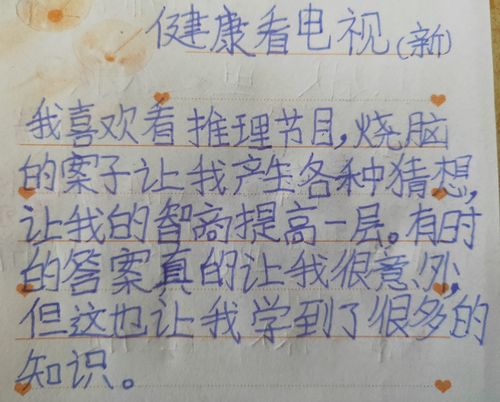 健康看电视(新)
我喜欢看推理节目,烧脑
的案子让我产生各种猜想,
让我的智商提高一层。有时
的答案真的让我很意外,
但这也让我学到了很多的
知识。